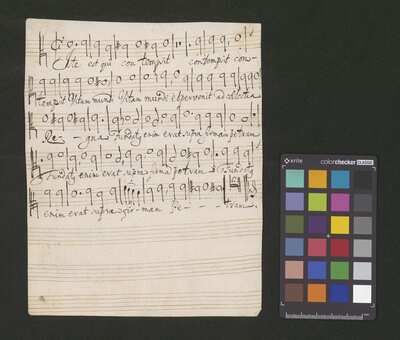 Iste est qui contempsit contempsit con-
tempsit Vitam mundi Vitam mundi et pervenit ad coelestia
Re- - gna fundatus enim erat supra firmam petram
fundatus enim erat supra firmam petram fundatus
enim erat supra fir-mam Pe- - - tram.
x-rite
colorchecker CLASSIC